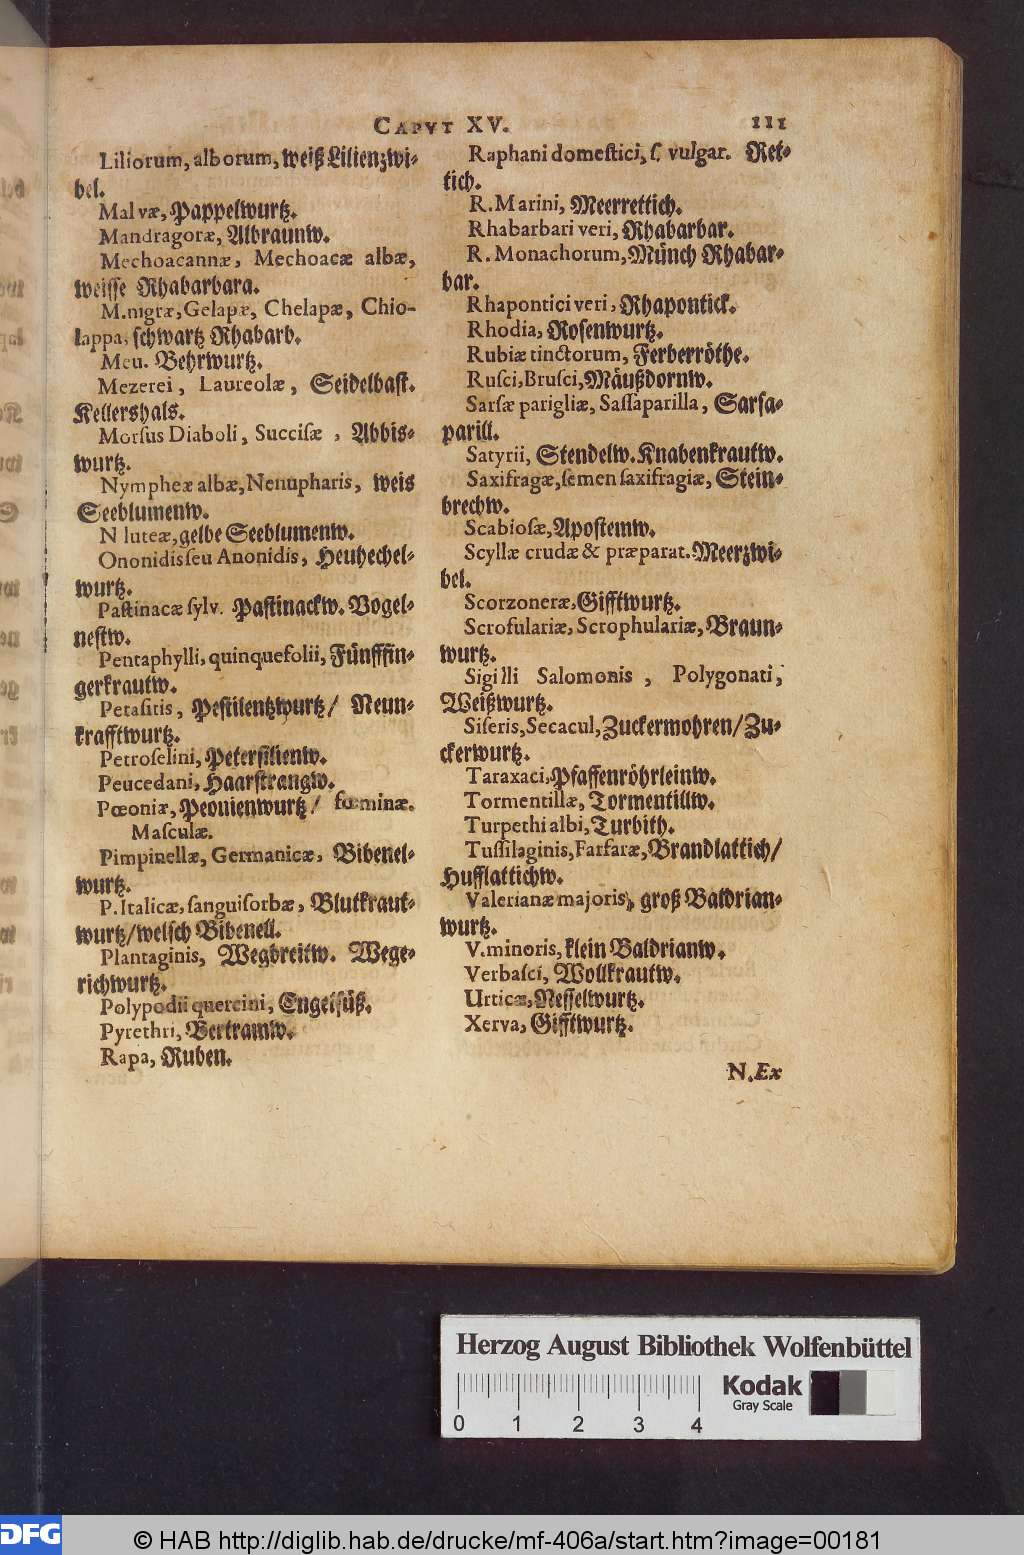 CAPVT XV. 111
Liliorum, alborum, weiß Lilienzwi-
bel.
Malvæ, Pappelwurtz.
Mandragoræ, Albraunw.
Mechoacannæ, Mechoacæ albæ,
weisse Rhabarbara.
M. nigræ, Gelapæ, Chelapæ, Chio-
lappa, schwartz Rhabarb.
Meu. Behrwurtz.
Mezerei, Laureolæ, Seidelbast.
Kellershals.
Morſus Diaboli, Succiſæ, Abbis-
wurtz.
Nympheæ albæ, Nenupharis, weis
Seeblumenw.
N luteæ, gelbe Seeblumenw.
Ononidis ſeu Anonidis, Heuhechel-
wurtz.
Paſtinacæ ſylv. Pastinackw. Vogel-
nestw.
Pentaphylli, quinquefolii, Fünfffin-
gerkrautw.
Petaſitis, Pestilentzwurtz/ Neun-
krafftwurtz.
Petroſelini, Petersilienw.
Peucedani, Haarstrangw.
Pœoniæ, Peonienwurtz/ fœminæ.
Maſculæ.
Pimpinellæ, Germanicæ, Bibenel-
wurtz.
P. Italicæ, ſanguiſorbæ, Blutkraut-
wurtz/welsch Bibenell.
Plantaginis, Wegbreitw. Wege-
richwurtz.
Polypodii quercini, Engelsüß.
Pyrethri, Bertramw.
Rapa, Ruben.
Raphani domeſtici, ſ. vulgar. Ret-
tich.
R. Marini, Meerrettich.
Rhabarbari veri, Rhabarbar.
R. Monachorum, Münch Rhabar-
bar.
Rhapontici veri, Rhapontick.
Rhodia, Rosenwurtz.
Rubiæ tinctorum, Ferberröthe.
Ruſci, Bruſci, Mäußdornw.
Sarſæ parigliæ, Saſſaparilla, Sarsa-
parill.
Satyrii, Stendelw. Knabenkrautw.
Saxifragæ, ſemen ſaxifragiæ, Stein-
brechw.
Scabioſæ, Apostemw.
Scyllæ crudæ & præparat. Meerzwi-
bel.
Scorzoneræ, Gifftwurtz.
Scrofulariæ, Scrophulariæ, Braun-
wurtz.
Sigilli Salomonis, Polygonati,
Weißwurtz.
Siſeris, Secacul, Zuckermohren/Zu-
ckerwurtz.
Taraxaci, Pfaffenröhrleinw.
Tormentillæ, Tormentillw.
Turpethi albi, Turbith.
Tuſſilaginis, Farfaræ, Brandlattich/
Hufflattichw.
Valerianæ majoris, groß Baldrian-
wurtz.
V. minoris, klein Baldrianw.
Verbaſci, Wollkrautw.
Urticæ, Nesselwurtz.
Xerva, Gifftwurtz.
N. Ex
Herzog August Bibliothek Wolfenbüttel
Kodak
Gray Scale
0 1 2 3 4
DFG
© HAB http://diglib.hab.de/drucke/mf-406a/start.htm?image=00181